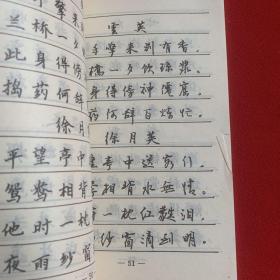 擎来
兰桥一夕
此身得傍
捣药何辞
徐月
平望亭中
鸳鸯相背
他时一枕
夜雨纱窗
雲英
手擎来别有香。
一夕饮琼浆。
身得傍神仙窟。
药何辞百 忙。
徐月英
亭中送客行。
相背水无情。
一枕红 泪。
纱窗滴到明。
51